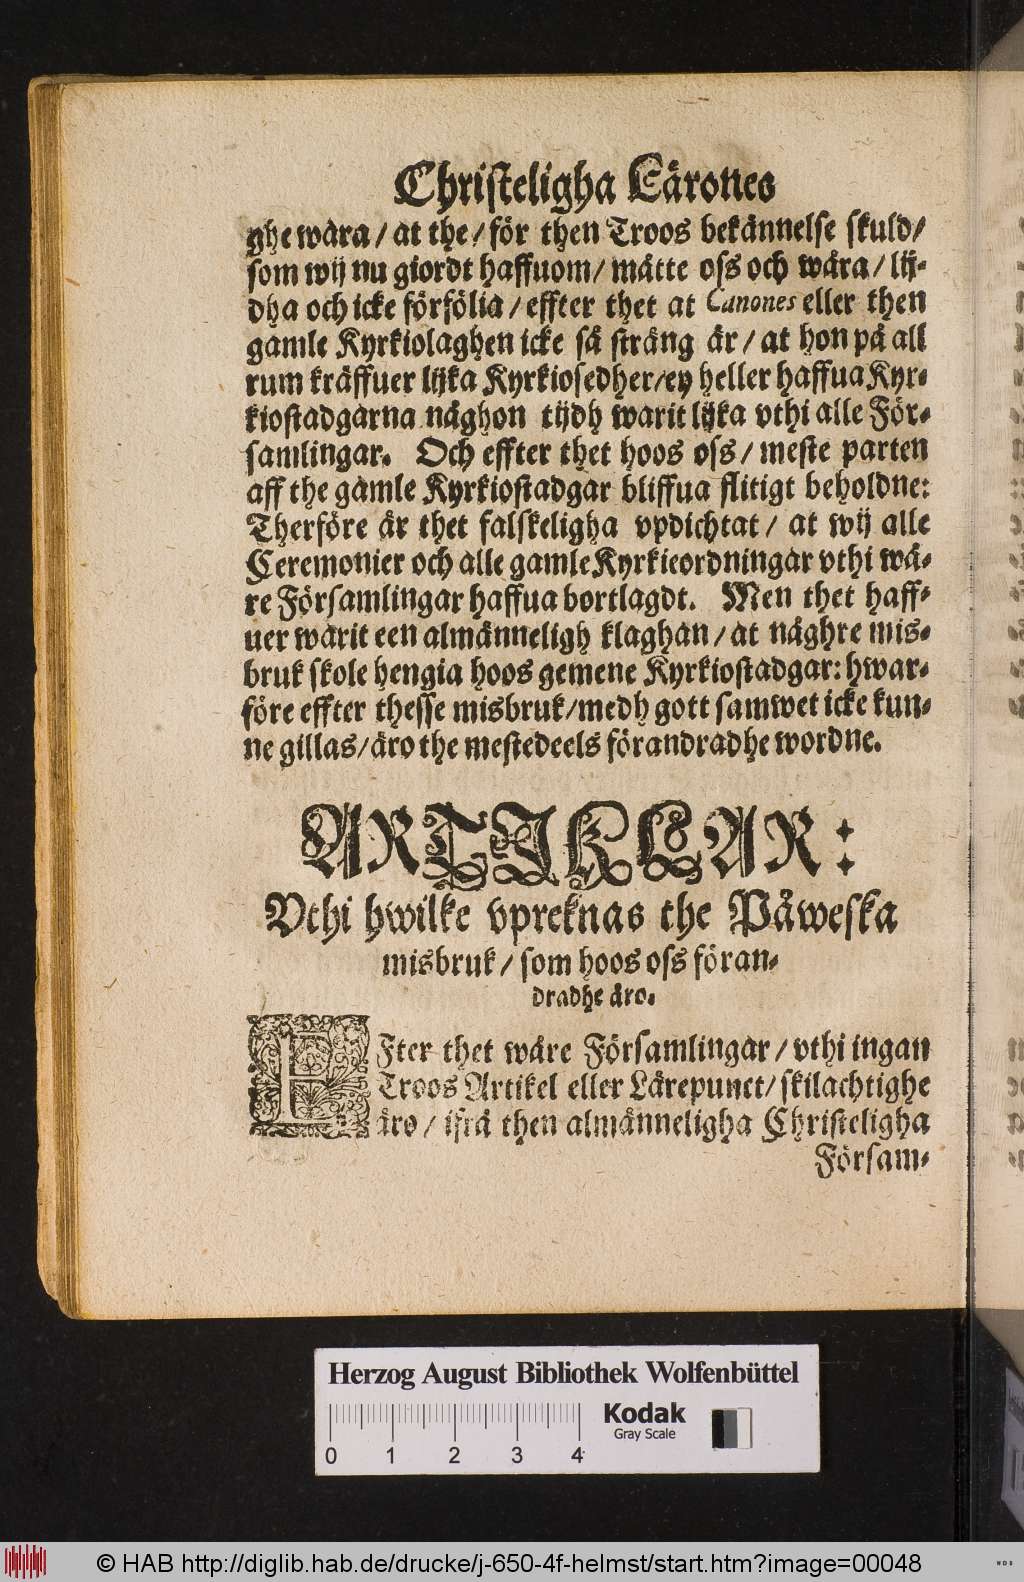 Christeligha Lärones
ghe wara / at the / för then Troos bekännelse skuld /
som wij nu giordt haffuom / måtte oss och wåra / lij-
dha och icke förfölia / effter thet at Canones eller then
gamle Kyrkiolaghen icke så sträng är / at hon på all
rum kräffuer lijka Kyrkiosedher / ey heller haffua Kyr-
kiostadgarna någhon tijdh warit lijka vthi alle För-
samlingar. Och effter thet hoos oss / meste parten
aff the gamle Kyrkiostadgar bliffua flitigt beholdne:
Therföre är thet falskeligha vpdichtat / at wij alle
Ceremonier och alle gamle Kyrkieordningar vthi wå-
re Församlingar haffua bortlagdt. Men thet haff-
uer warit een almänneligh klaghan / at någhre mis-
bruk skole hengia hoos gemene Kyrkiostadgar: hwar-
före effter thesse misbruk / medh gott samwet icke kun-
ne gillas / äro the mestedeels förandradhe wordne.
ARTIKLAR:
Vthi hwilke vpreknas the Påweska
misbruk / som hoos oss föran-
dradhe äro.
EFter thet wåre Församlingar / vthi ingan
Troos Artikel eller Lärepunct / skilachtighe
äro / ifrå then almänneligha Christeligha
Försam-
Herzog August Bibliothek Wolfenbüttel
0 1 2 3 4
Kodak
Gray Scale
© HAB http://diglib.hab.de/drucke/j-650-4f-helmst/start.htm?image=00048
WDB